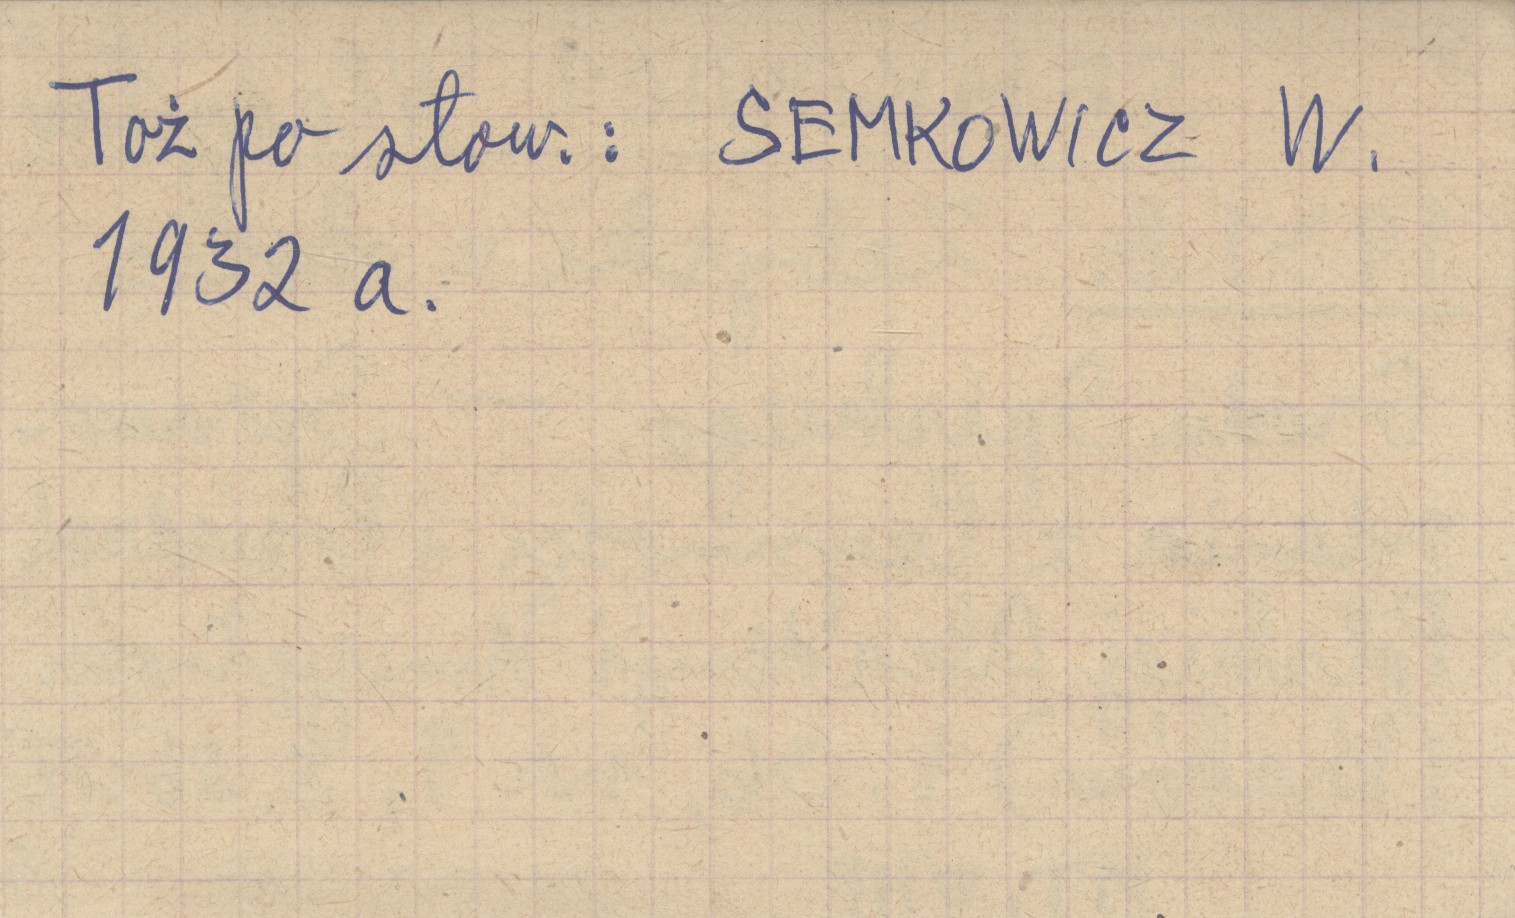 Toż po słow.: SEMKOWICZ W.
1932 a.